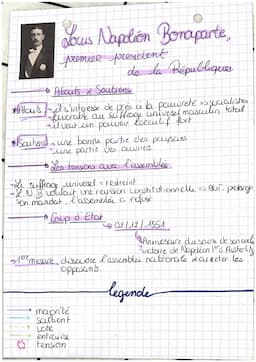 Louis Napoléon Bonaparte,
premier president
de la République
Atouts & Soutiens
Atouts: il s'interesse de près à la pauvreté socialistes
favorable au suffrage universel masculin total
il veut un pouvoir executif fort
Soutien une bonne partie des paysans
une partie des ouvriers
Les tensions avec l'assemblée
Le suffrage universel restreint
L.N.B voulait une revision constitutionnelle But: prolonger
son mandat, l'assemblée a refusé
Coup d'Etat
02/12/1851
Anniversaire du sacre de son oncle
victoire de Napoléon 1er Austerlitz
1ère mesure, dissoudre l'assemblée nationale arreter les
opposants.
légende
majorité
soutient
vote
entraine
tension